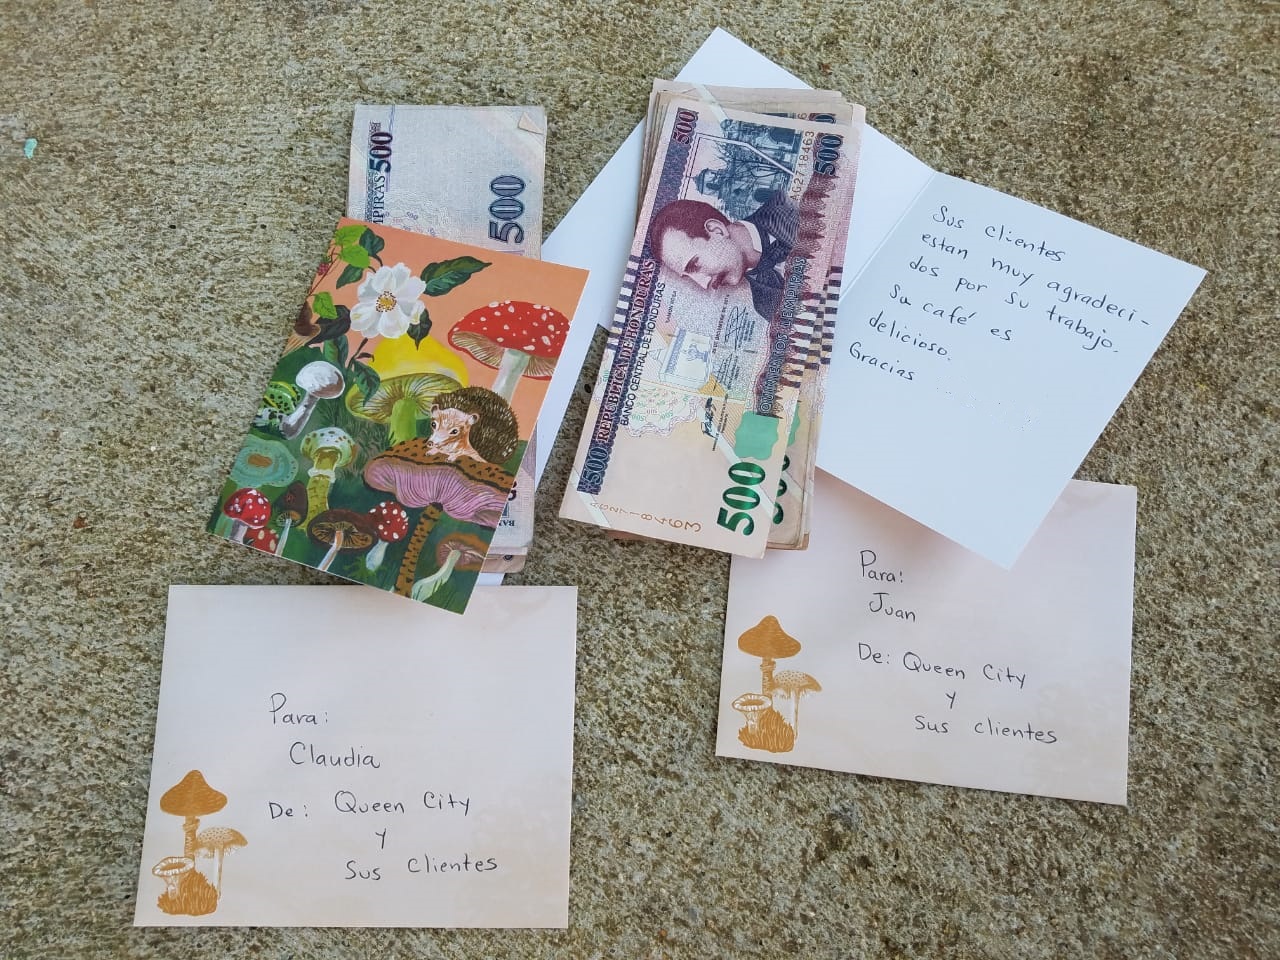 500
MPIRAS 500
500
500
500
G2718463
REPUBLICA DE HONDURAS
BANCO CENTRAL DE HONDURAS
QUINIENTOS LEMPIRAS
500
500
G2718463
Sus clientes
estan muy agradeci-
dos por su trabajo.
Su café es
delicioso.
Gracias
Para:
Juan
De: Queen City
y
Sus clientes
Para:
Claudia
De: Queen City
y
Sus clientes